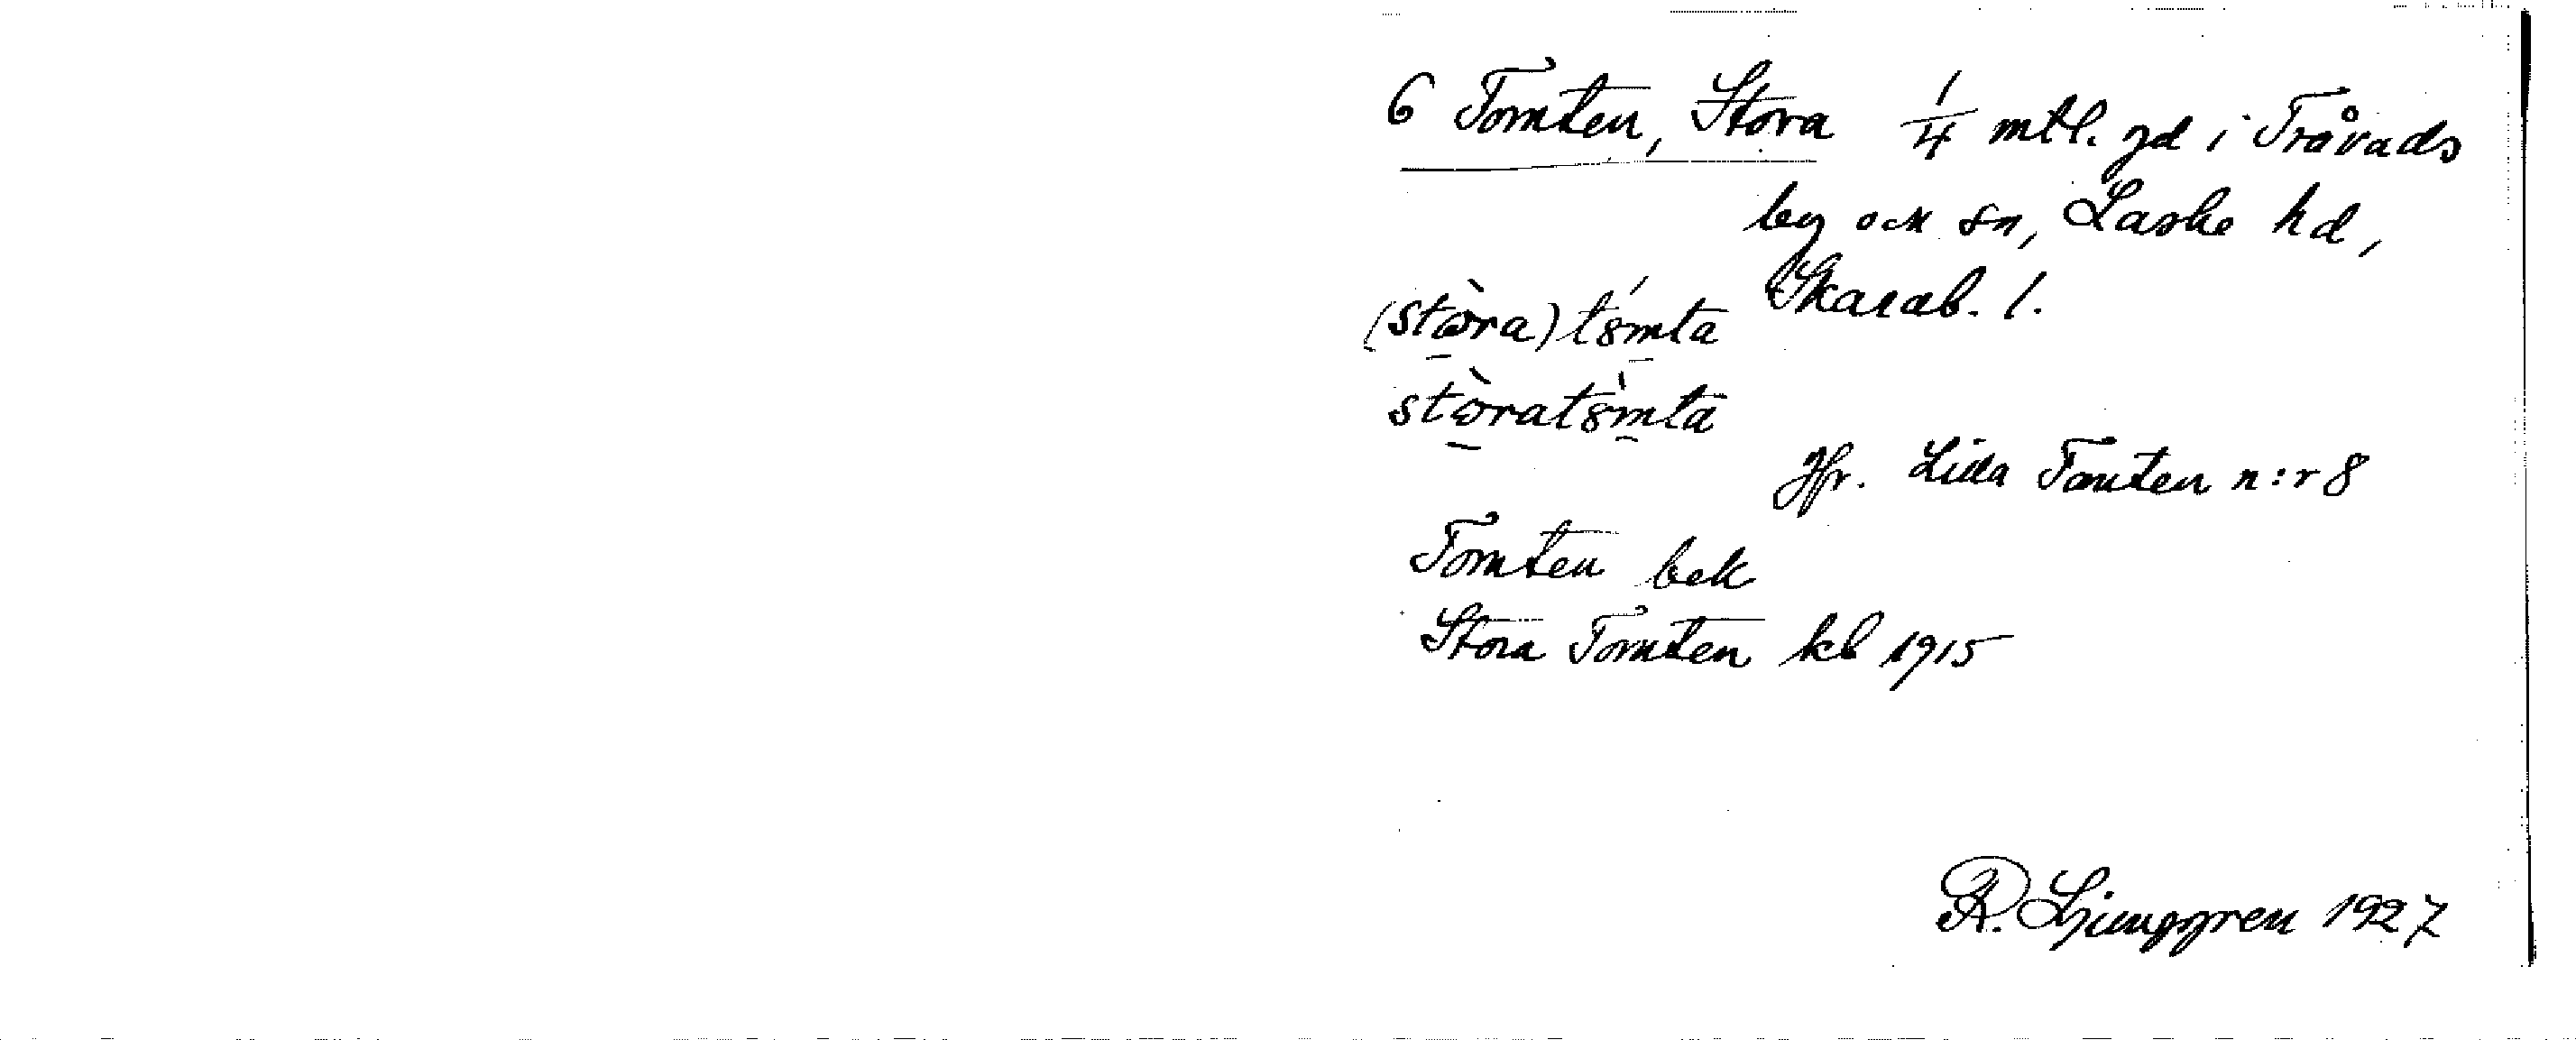 6 Tomten, Stora 1/4 mtl. gd i Tråvads
by och sn, Laske hd,
Skarab. l.
(stò̱ra) tó̱mta
stò̱ratò̱mta
Jfr. Lilla Tomten n:r 8
Tomten bek
Stora Tomten kb 1915
R. Ljunggren 1927